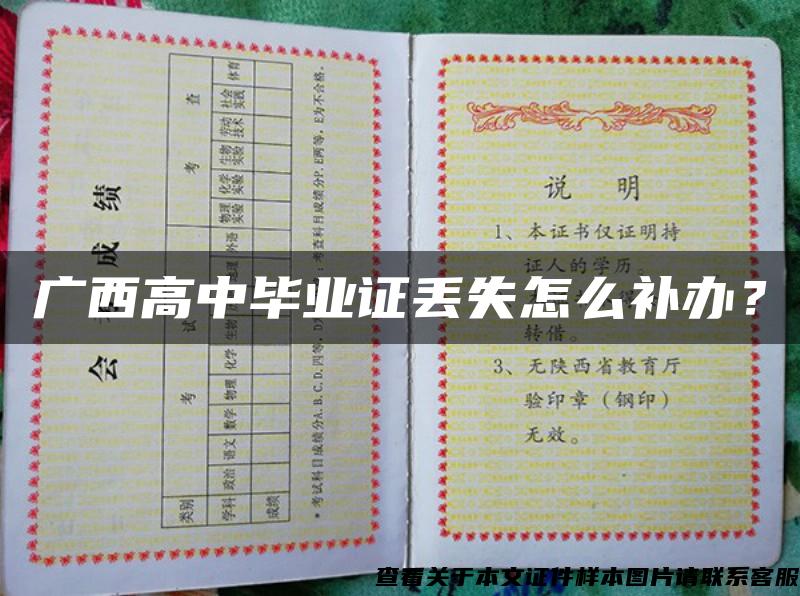 广西高中毕业证丢失怎么补办？
会 成 绩
类别 考 试 考 查
学科 政治 语文 数学 物理 化学 生物 外语 物理实验 化学实验 生物实验 劳动技术 社会实践 体育
成绩
*考试科目成绩分A、B、C、D四等，D为 ：考查科目成绩分P、E两等，E为不合格。
说 明
1、本证书仅证明持
证人的学历。
转借。
3、无陕西省教育厅
验印章（钢印）
无效。
查看关于本文证件样本图片请联系客服